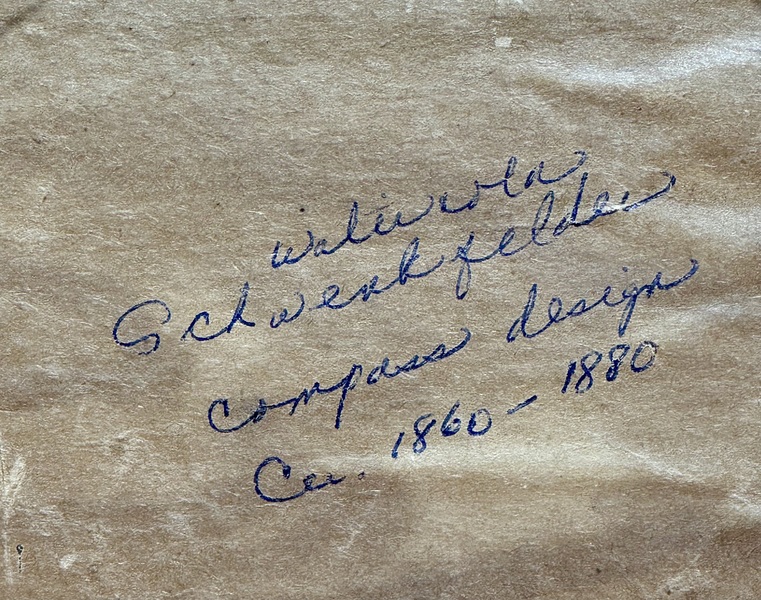 watercolor
Schwenkfelder
compass design
Ca. 1860 – 1880